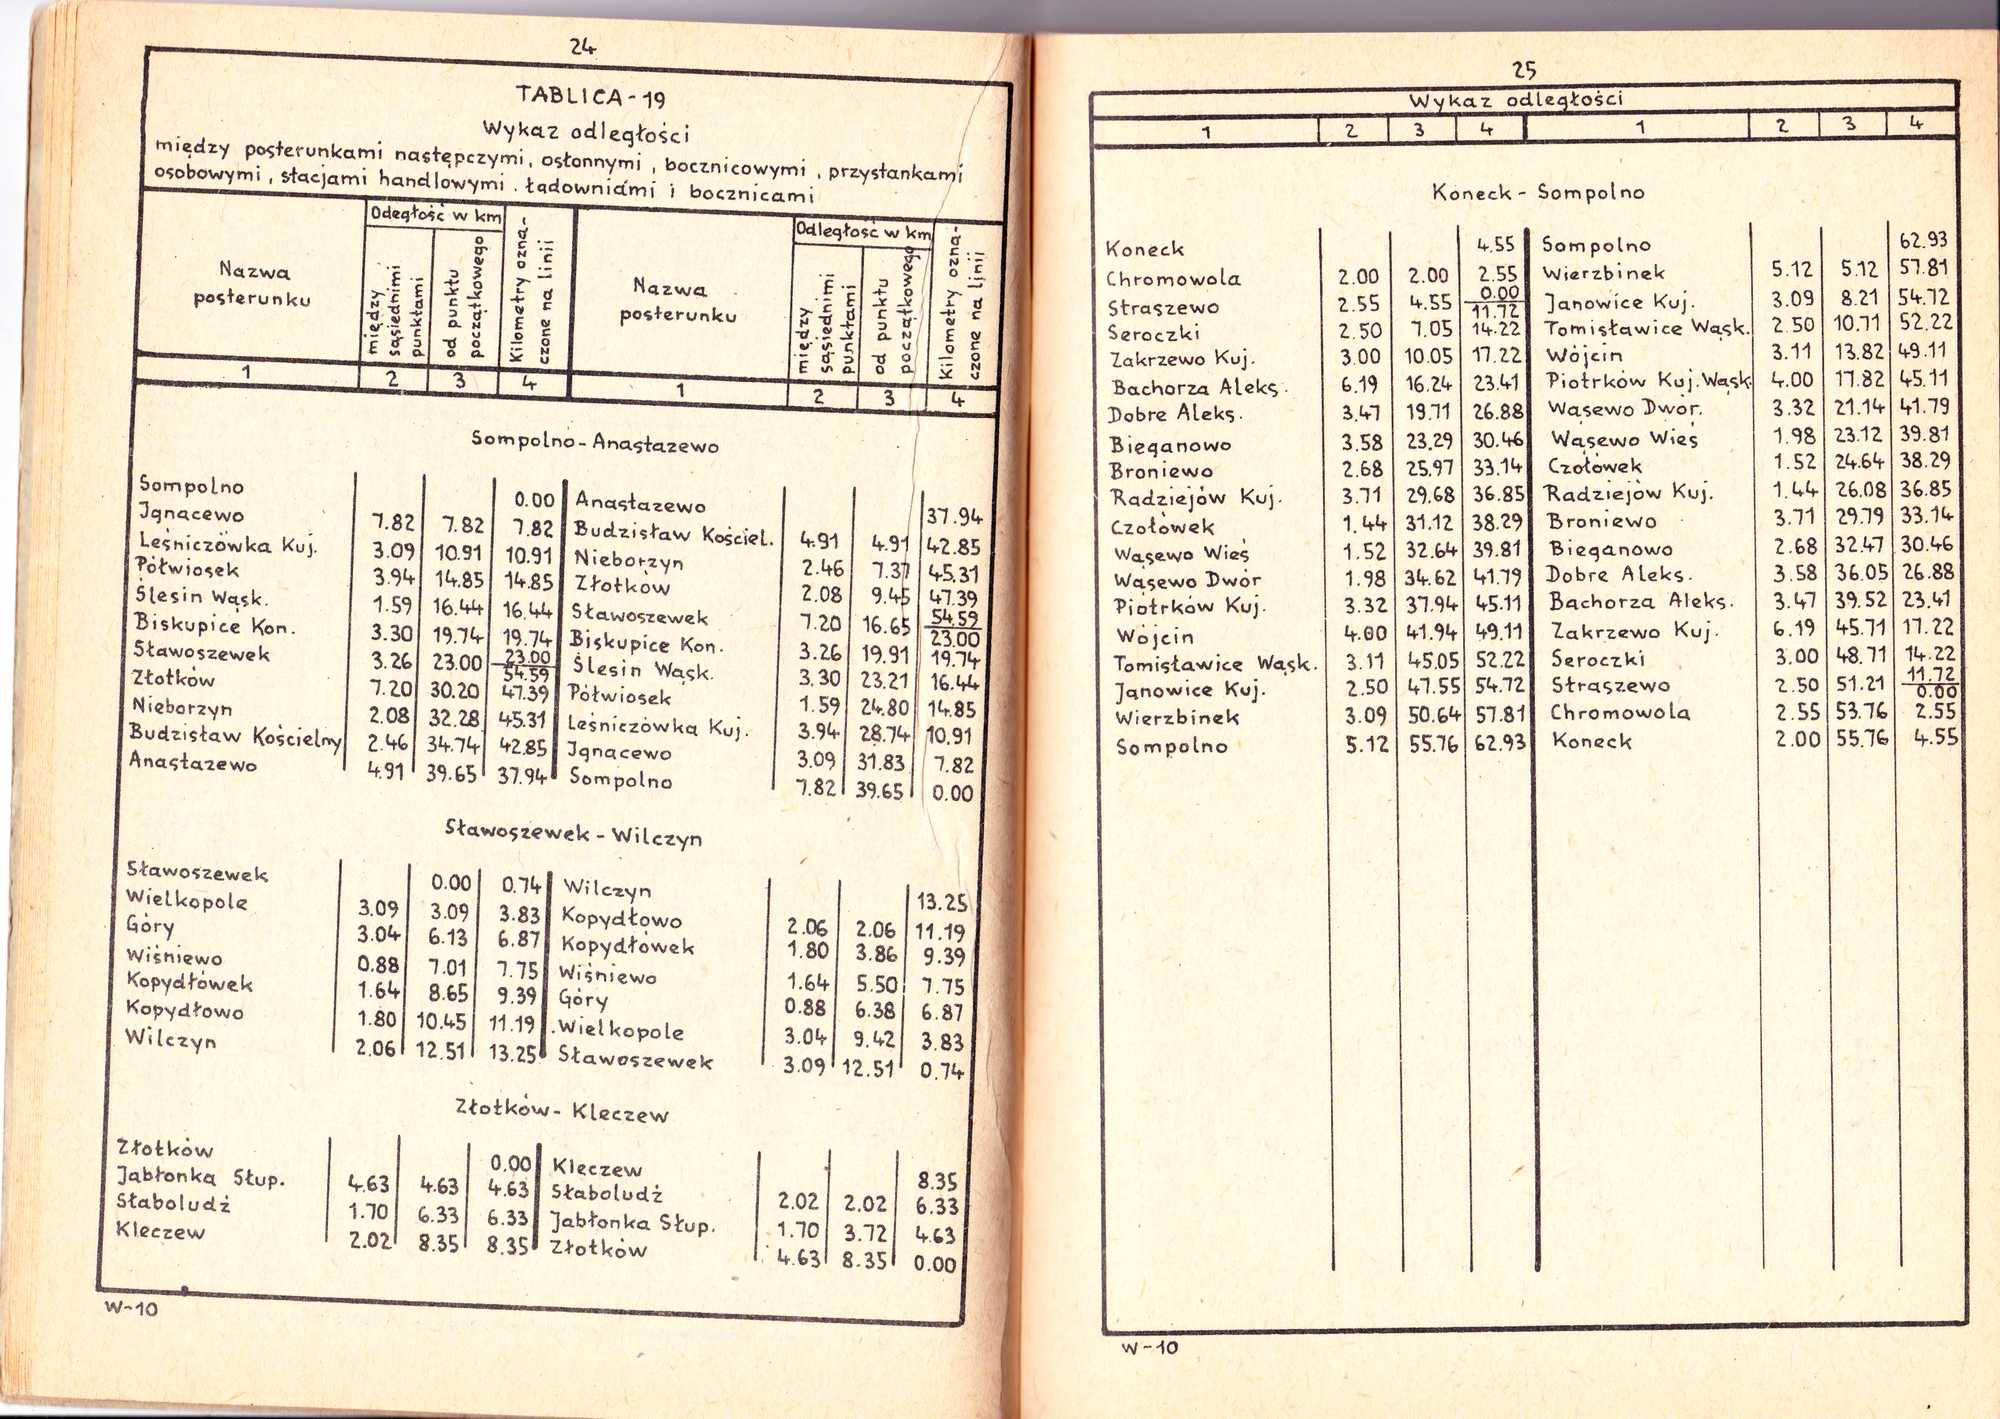 24
TABLICA-19
Wykaz odległości
między posterunkami następczymi, osłonnymi, bocznicowymi, przystankami
osobowymi, stacjami handlowymi. ładowniami i bocznicami
Nazwa posterunku | Odegłość w km | Kilometry ozna-czone na linii | Nazwa posterunku | Odległość w km | Kilometry ozna-czone na linii
między sąsiednimi punktami | od punktu początkowego | między sąsiednimi punktami | od punktu początkowego
1 2 3 4 1 2 3 4
Sompolno-Anastazewo
Sompolno 0.00 Anastazewo 37.94
Ignacewo 7.82 7.82 7.82 Budzisław Kościel. 4.91 4.91 42.85
Leśniczówka Kuj. 3.09 10.91 10.91 Nieborzyn 2.46 7.37 45.31
Półwiosek 3.94 14.85 14.85 Złotków 2.08 9.45 47.39
Ślesin Wąsk. 1.59 16.44 16.44 Sławoszewek 7.20 16.65 54.59 23.00
Biskupice Kon. 3.30 19.74 19.74 Biskupice Kon. 3.26 19.91 19.74
Sławoszewek 3.26 23.00 23.00 54.59 Ślesin Wąsk. 3.30 23.21 16.44
Złotków 7.20 30.20 47.39 Półwiosek 1.59 24.80 14.85
Nieborzyn 2.08 32.28 45.31 Leśniczówka Kuj. 3.94 28.74 10.91
Budzisław Kościelny 2.46 34.74 42.85 Ignacewo 3.09 31.83 7.82
Anastazewo 4.91 39.65 37.94 Sompolno 7.82 39.65 0.00
Sławoszewek - Wilczyn
Sławoszewek 0.00 0.74 Wilczyn 13.25
Wielkopole 3.09 3.09 3.83 Kopydłowo 2.06 2.06 11.19
Góry 3.04 6.13 6.87 Kopydłówek 1.80 3.86 9.39
Wiśniewo 0.88 7.01 7.75 Wiśniewo 1.64 5.50 7.75
Kopydłówek 1.64 8.65 9.39 Góry 0.88 6.38 6.87
Kopydłowo 1.80 10.45 11.19 Wielkopole 3.04 9.42 3.83
Wilczyn 2.06 12.51 13.25 Sławoszewek 3.09 12.51 0.74
Złotków- Kleczew
Złotków 0.00 Kleczew 8.35
Jabłonka Słup. 4.63 4.63 4.63 Słaboludź 2.02 2.02 6.33
Słaboludź 1.70 6.33 6.33 Jabłonka Słup. 1.70 3.72 4.63
Kleczew 2.02 8.35 8.35 Złotków 4.63 8.35 0.00
W-10
25
Wykaz odległości
1 2 3 4 1 2 3 4
Koneck - Sompolno
Koneck 4.55 Sompolno 62.93
Chromowola 2.00 2.00 2.55 Wierzbinek 5.12 5.12 57.81
Straszewo 2.55 4.55 0.00 11.72 Janowice Kuj. 3.09 8.21 54.72
Seroczki 2.50 7.05 14.22 Tomisławice Wąsk. 2.50 10.71 52.22
Zakrzewo Kuj. 3.00 10.05 17.22 Wójcin 3.11 13.82 49.11
Bachorza Aleks. 6.19 16.24 23.41 Piotrków Kuj. Wąsk. 4.00 17.82 45.11
Dobre Aleks. 3.47 19.71 26.88 Wąsewo Dwór. 3.32 21.14 41.79
Bieganowo 3.58 23.29 30.46 Wąsewo Wieś 1.98 23.12 39.81
Broniewo 2.68 25.97 33.14 Czołówek 1.52 24.64 38.29
Radziejów Kuj. 3.71 29.68 36.85 Radziejów Kuj. 1.44 26.08 36.85
Czołówek 1.44 31.12 38.29 Broniewo 3.71 29.79 33.14
Wąsewo Wieś 1.52 32.64 39.81 Bieganowo 2.68 32.47 30.46
Wąsewo Dwór 1.98 34.62 41.79 Dobre Aleks. 3.58 36.05 26.88
Piotrków Kuj. 3.32 37.94 45.11 Bachorza Aleks. 3.47 39.52 23.41
Wójcin 4.00 41.94 49.11 Zakrzewo Kuj. 6.19 45.71 17.22
Tomisławice Wąsk. 3.11 45.05 52.22 Seroczki 3.00 48.71 14.22
Janowice Kuj. 2.50 47.55 54.72 Straszewo 2.50 51.21 11.72 0.00
Wierzbinek 3.09 50.64 57.81 Chromowola 2.55 53.76 2.55
Sompolno 5.12 55.76 62.93 Koneck 2.00 55.76 4.55
W-10